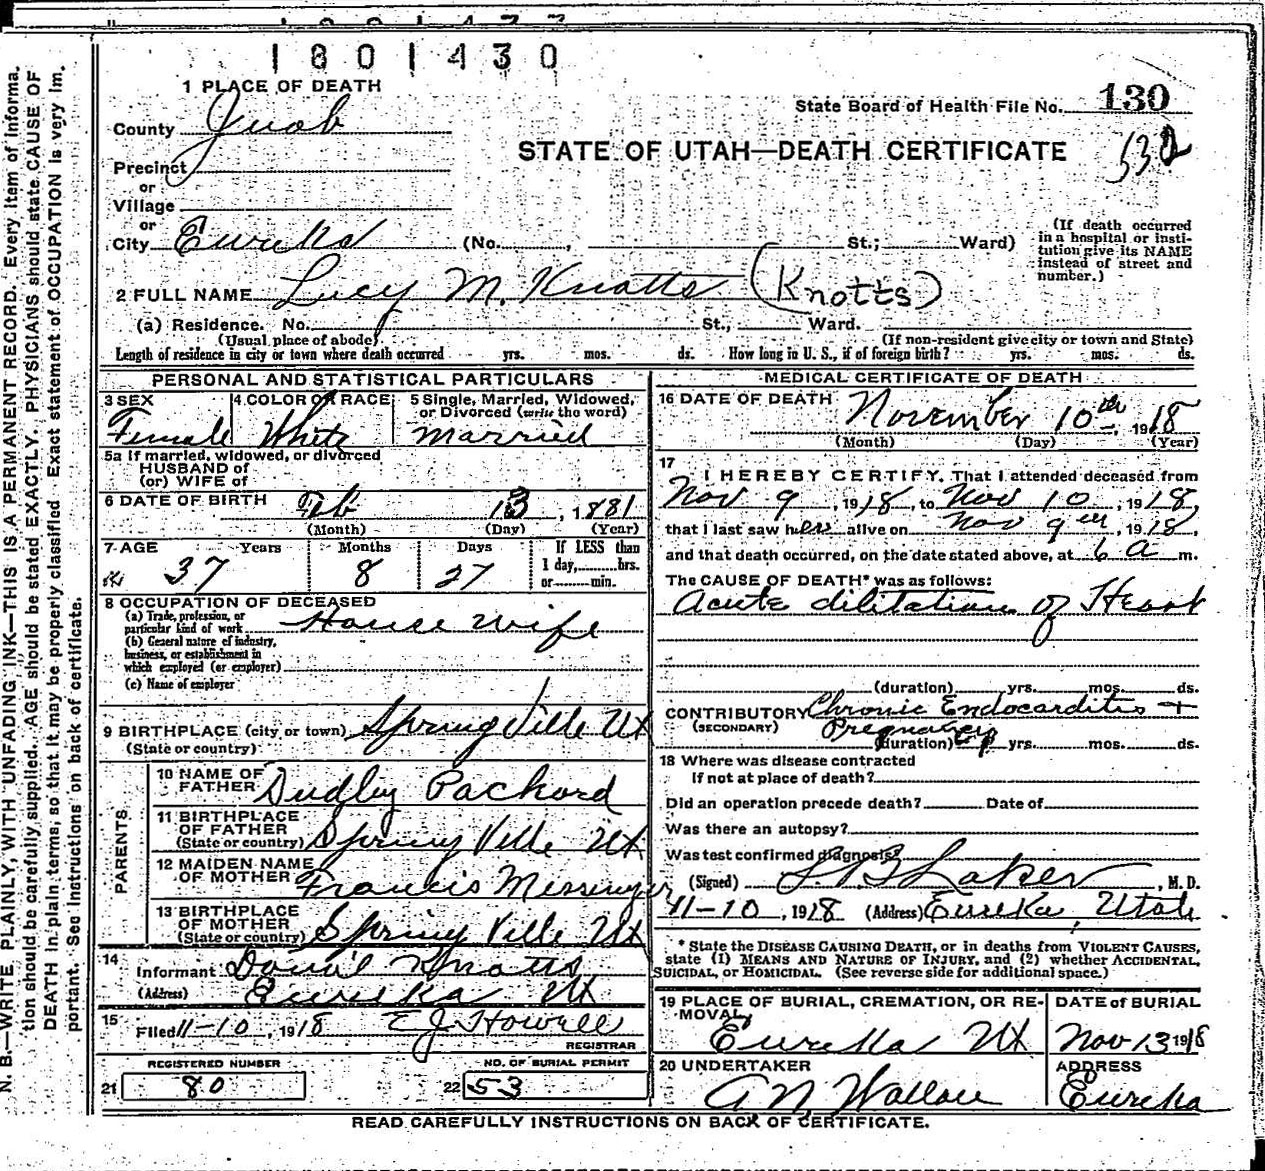 1801430
1 PLACE OF DEATH
State Board of Health File No. 130
County Juab
532
STATE OF UTAH—DEATH CERTIFICATE
Precinct
or
Village
or
City Eureka (No. , St.; Ward)
(If death occurred in a hospital or institution give its NAME instead of street and number.)
2 FULL NAME Lucy M. Knotts (Knotts)
(a) Residence. No. St., Ward.
(Usual place of abode) (If non-resident give city or town and State)
Length of residence in city or town where death occurred yrs. mos. ds. How long in U. S., if of foreign birth? yrs. mos. ds.
PERSONAL AND STATISTICAL PARTICULARS
3 SEX Female
4 COLOR OR RACE White
5 Single, Married, Widowed, or Divorced (write the word) Married
5a If married, widowed, or divorced
HUSBAND of
(or) WIFE of
6 DATE OF BIRTH Feb 13, 1881
(Month) (Day) (Year)
7 AGE Years Months Days If LESS than
37 8 27 1 day, hrs.
or min.
8 OCCUPATION OF DECEASED
(a) Trade, profession, or
particular kind of work House wife
(b) General nature of industry,
business, or establishment in
which employed (or employer)
(c) Name of employer
9 BIRTHPLACE (city or town) Spring Ville Ut
(State or country)
PARENTS
10 NAME OF FATHER Dudley Packard
11 BIRTHPLACE OF FATHER (State or country) Spring Ville Ut
12 MAIDEN NAME OF MOTHER Francis Messinger
13 BIRTHPLACE OF MOTHER (State or country) Spring Ville Ut
14 Informant Knotts
(Address) Eureka Ut
15 Filed 11-10, 1918 E J Howell
REGISTRAR
REGISTERED NUMBER NO. OF BURIAL PERMIT
21 80 22 53
MEDICAL CERTIFICATE OF DEATH
16 DATE OF DEATH November 10th, 1918
(Month) (Day) (Year)
17
I HEREBY CERTIFY, That I attended deceased from
Nov 9, 1918, to Nov 10, 1918,
that I last saw her alive on Nov 9th, 1918,
and that death occurred, on the date stated above, at 6 a m.
The CAUSE OF DEATH* was as follows:
Acute dilitation of Heart
(duration) yrs. mos. ds.
CONTRIBUTORY Chronic Endocarditis +
(SECONDARY) Pregnancy
(duration) yrs. mos. ds.
18 Where was disease contracted
If not at place of death?
Did an operation precede death? Date of
Was there an autopsy?
Was test confirmed diagnosis?
(Signed) Laker, M. D.
11-10, 1918 (Address) Eureka, Utah
* State the DISEASE CAUSING DEATH, or in deaths from VIOLENT CAUSES,
state (1) MEANS AND NATURE OF INJURY, and (2) whether ACCIDENTAL,
SUICIDAL, or HOMICIDAL. (See reverse side for additional space.)
19 PLACE OF BURIAL, CREMATION, OR REMOVAL Eureka Ut
DATE of BURIAL Nov 13 1918
20 UNDERTAKER A N Wallace
ADDRESS Eureka
READ CAREFULLY INSTRUCTIONS ON BACK OF CERTIFICATE.
N. B.—WRITE PLAINLY, WITH UNFADING INK—THIS IS A PERMANENT RECORD. Every item of informa-
tion should be carefully supplied. AGE should be stated EXACTLY. PHYSICIANS should state CAUSE OF
DEATH in plain terms, so that it may be properly classified. Exact statement of OCCUPATION is very im-
portant. See instructions on back of certificate.